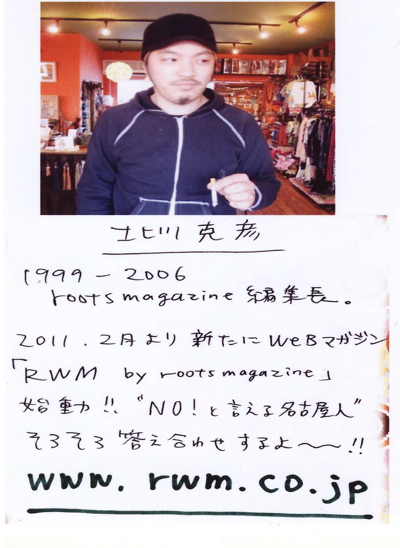 北川 克彦
1999 - 2006
roots magazine 編集長。
2011.2月より 新たに WeBマガジン
「RWM by roots magazine」
始動!! "NO!と言える名古屋人"
そろそろ 答え合わせするよ〜〜!!
www.rwm.co.jp